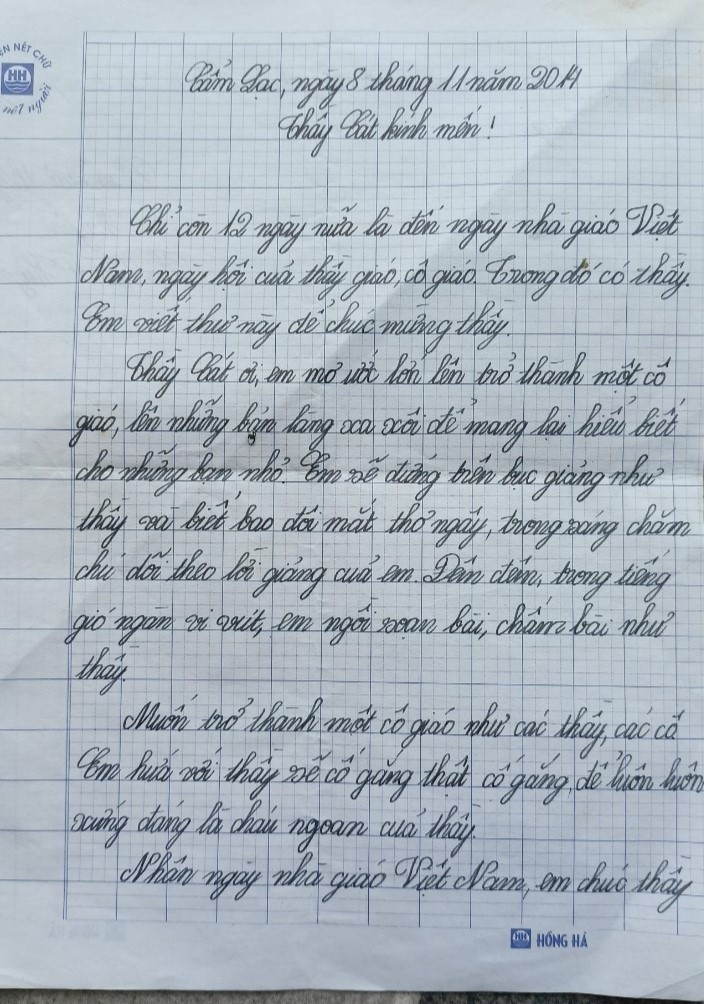 ỆN NẾT CHỮ
HH
nết người
Cẩm Lạc, ngày 8 tháng 11 năm 2014
Thầy Cát kính mến!
Chỉ còn 12 ngày nữa là đến ngày nhà giáo Việt
Nam, ngày hội của thầy giáo, cô giáo. Trong đó có thầy.
Em viết thư này để chúc mừng thầy.
Thầy Cát ơi, em mơ ước lớn lên trở thành một cô
giáo, lên những bản làng xa xôi để mang lại hiểu biết
cho những bạn nhỏ. Em sẽ đứng trên bục giảng như
thầy và biết bao đôi mắt thơ ngây, trong sáng chăm
chú dõi theo lời giảng của em. Đêm đêm, trong tiếng
gió ngàn vi vút, em ngồi soạn bài, chấm bài như
thầy.
Muốn trở thành một cô giáo như các thầy, các cô
Em hứa với thầy sẽ cố gắng thật cố gắng, để luôn luôn
xứng đáng là cháu ngoan của thầy.
Nhân ngày nhà giáo Việt Nam, em chúc thầy
HH HỒNG HÀ